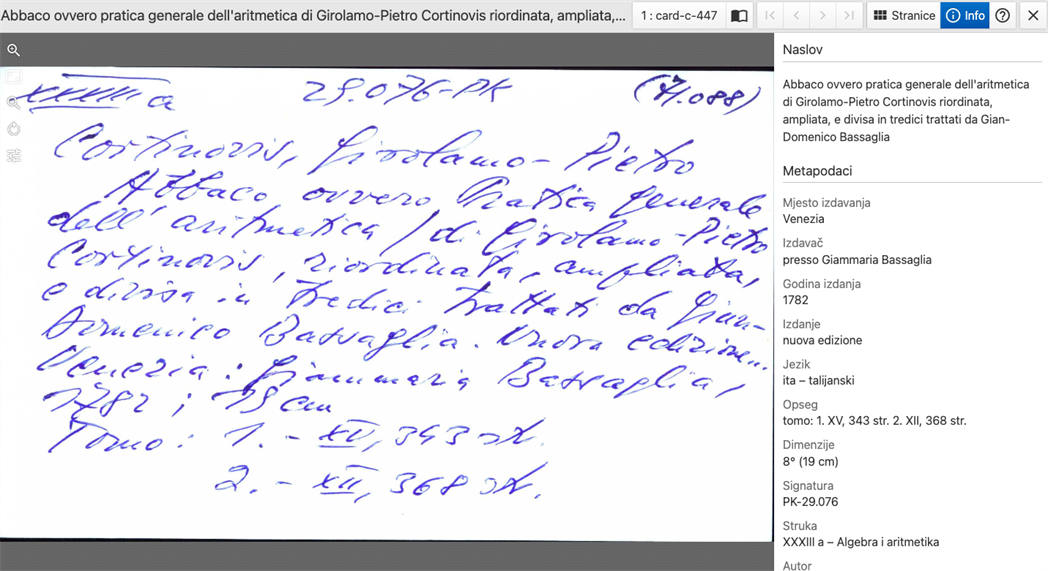 Abbaco ovvero pratica generale dell'aritmetica di Girolamo-Pietro Cortinovis riordinata, ampliata,...
1 : card-c-447
Stranice
Info
XXXIII a 29.076-PK (71.088)
Cortinovis, Girolamo-Pietro
Abbaco ovvero Pratica generale
dell' aritmetica / di Girolamo-Pietro
Cortinovis, riordinata, ampliata,
e divisa in tredici trattati da Gian-
Domenico Bassaglia. Nuova edizione.
Venezia : Giammaria Bassaglia,
1782 ; 19 cm
Tomo : 1. - XV, 343 str.
2. - XII, 368 str.
Naslov
Abbaco ovvero pratica generale dell'aritmetica
di Girolamo-Pietro Cortinovis riordinata,
ampliata, e divisa in tredici trattati da Gian-
Domenico Bassaglia
Metapodaci
Mjesto izdavanja
Venezia
Izdavač
presso Giammaria Bassaglia
Godina izdanja
1782
Izdanje
nuova edizione
Jezik
ita – talijanski
Opseg
tomo: 1. XV, 343 str. 2. XII, 368 str.
Dimenzije
8° (19 cm)
Signatura
PK-29.076
Struka
XXXIII a – Algebra i aritmetika
Autor